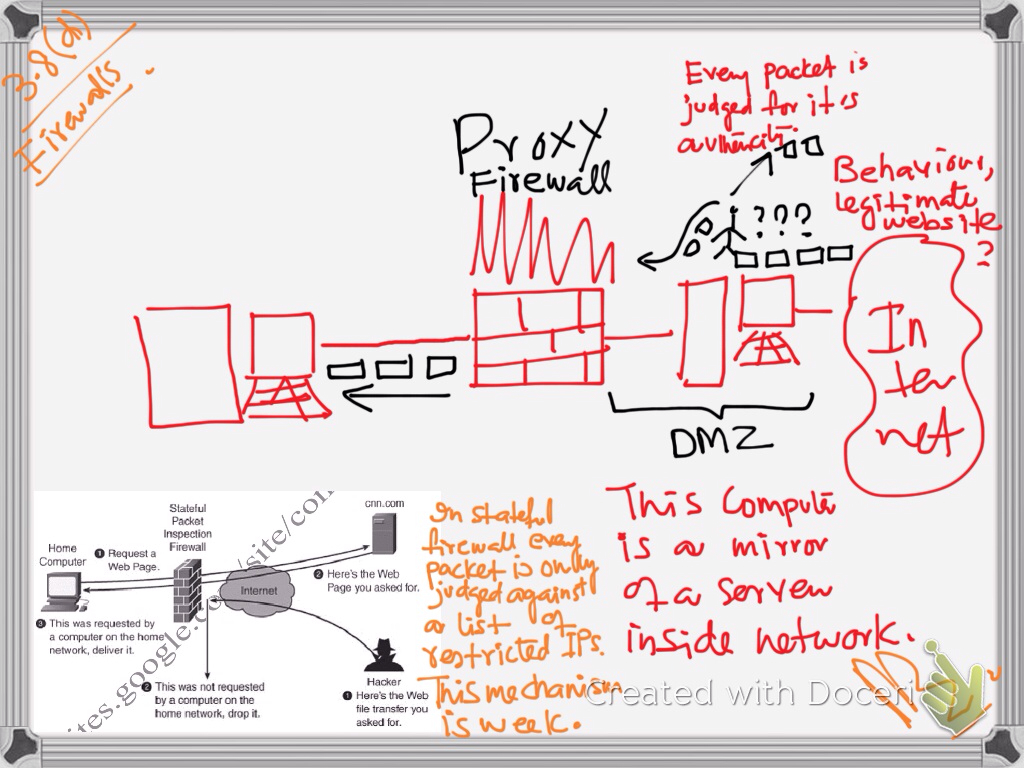 3.8(d)
Firewalls
Proxy
Firewall
Every packet is
judged for it is
authenticiti.
Behaviour,
legitimate
website
?
???
In
ter
net
DMZ
Stateful
Packet
Inspection
Firewall
cnn.com
Home
Computer
1 Request a
Web Page.
2 Here's the Web
Page you asked for.
Internet
3 This was requested by
a computer on the home
network, deliver it.
2 This was not requested
by a computer on the
home network, drop it.
Hacker
1 Here's the Web
file transfer you
asked for.
ites.google.co
/site/con
In stateful
firewall every
packet is only
judged against
a list of
restricted IPs.
This mechanism
is week.
This Computer
is a mirror
of a server
inside network.
Created with Doceri